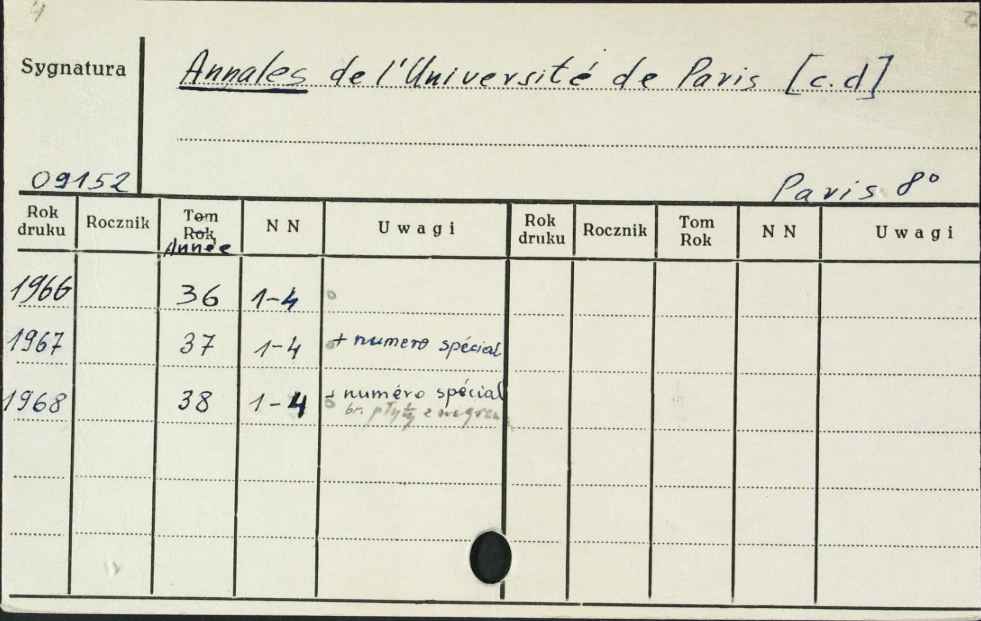 4
Sygnatura
Annales de l'Université de Paris [c.d]
09152
Paris 8°
Rok druku Rocznik Tom Rok Année N N Uwagi Rok druku Rocznik Tom Rok N N Uwagi
1966 36 1-4
1967 37 1-4 + numero spécial
1968 38 1-4 + numéro spécial
br. płyty z